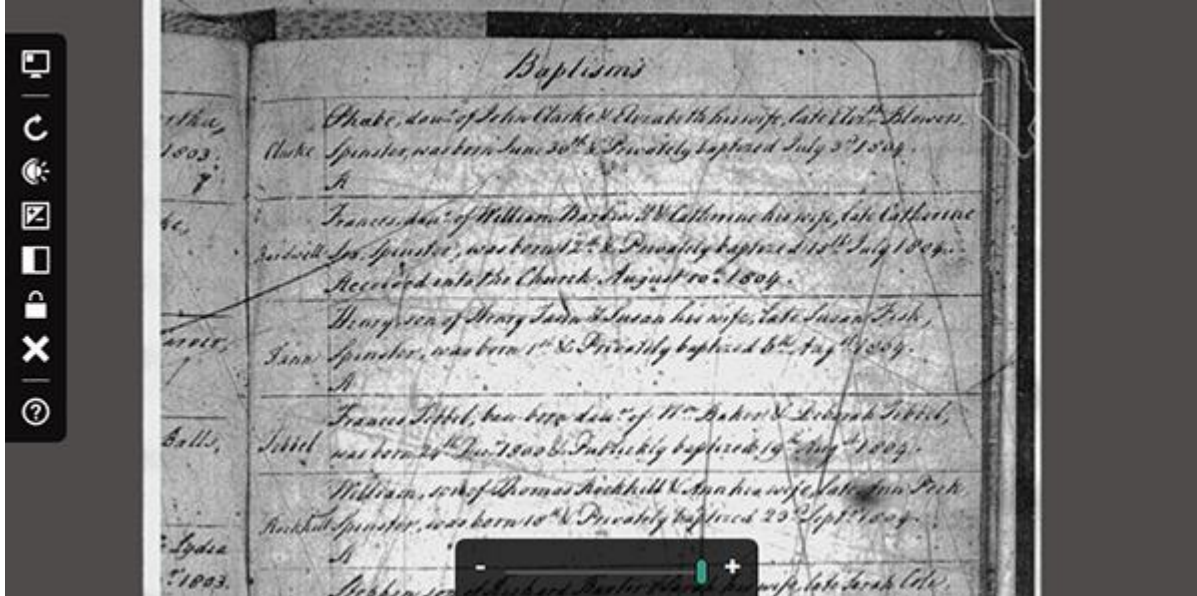 Baptisms
ytha,
1803.
7
Clarke
Phabe, daur. of John Clarke & Elizabeth his wife, late Elizth. Blowers,
Spinster, was born June 30th & Privately baptized July 3d. 1804.
R
ke,
Frances, daur. of William & Catherine his wife, late Catherine
Spinster, was born 12th & Privately baptized 15th July 1804.
Received into the Church August 10th 1804.
Henry, son of Henry Tann & Susan his wife, late Susan Fisk,
Tann Spinster, was born 1st & Privately baptized 5th Augst. 1804.
R
Frances Tibbel, base born daur. of Wm. Baker & Deborah Tibbel,
Tibbel was born Decr. 1800 & Publickly baptized 19th Augst. 1804.
Balls,
William, son of Thomas Rockhill & Ann his wife, late Ann Peck
Spinster, was born 18th & Privately baptized 23d Septr. 1804.
R
Lydia
1803.
Stephen, son of Richard & his wife, late Sarah Cole,
- +